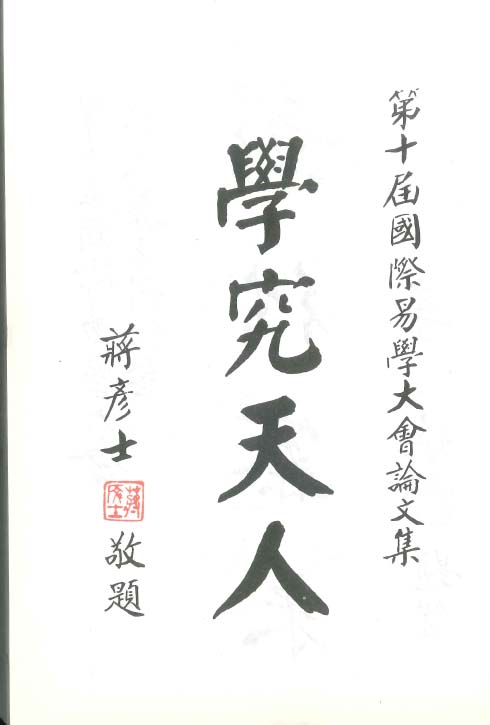 第十屆國際易學大會論文集
學究天人
蔣彥士
蔣彥士
敬題